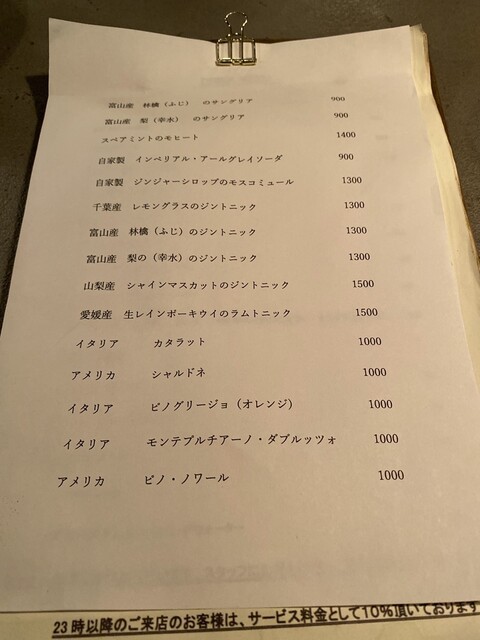 富山産 林檎（ふじ） のサングリア 900
富山産 梨（幸水） のサングリア 900
スペアミントのモヒート 1400
自家製 インペリアル・アールグレイソーダ 900
自家製 ジンジャーシロップのモスコミュール 1300
千葉産 レモングラスのジントニック 1300
富山産 林檎（ふじ）のジントニック 1300
富山産 梨の（幸水）のジントニック 1300
山梨産 シャインマスカットのジントニック 1500
愛媛産 生レインボーキウイのラムトニック 1500
イタリア カタラット 1000
アメリカ シャルドネ 1000
イタリア ピノグリージョ（オレンジ） 1000
イタリア モンテプルチアーノ・ダブルッツォ 1000
アメリカ ピノ・ノワール 1000
23時以降のご来店のお客様は、サービス料金として10%頂いております